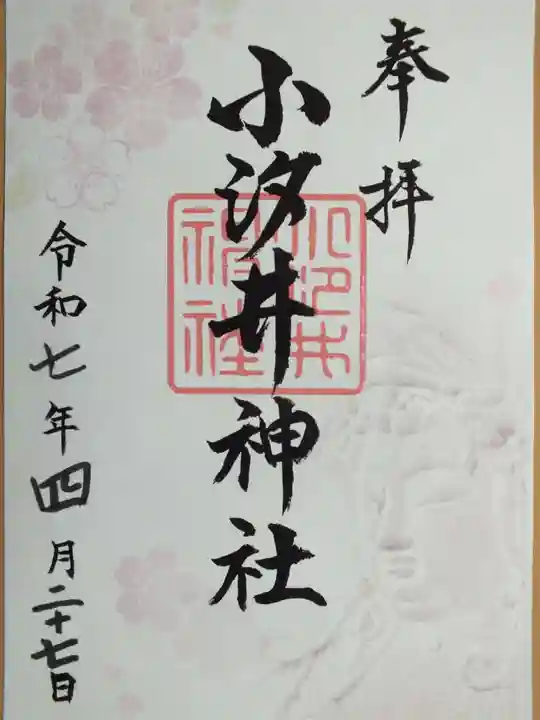 奉拝
小汐井神社
小汐井神社
令和七年四月二十七日